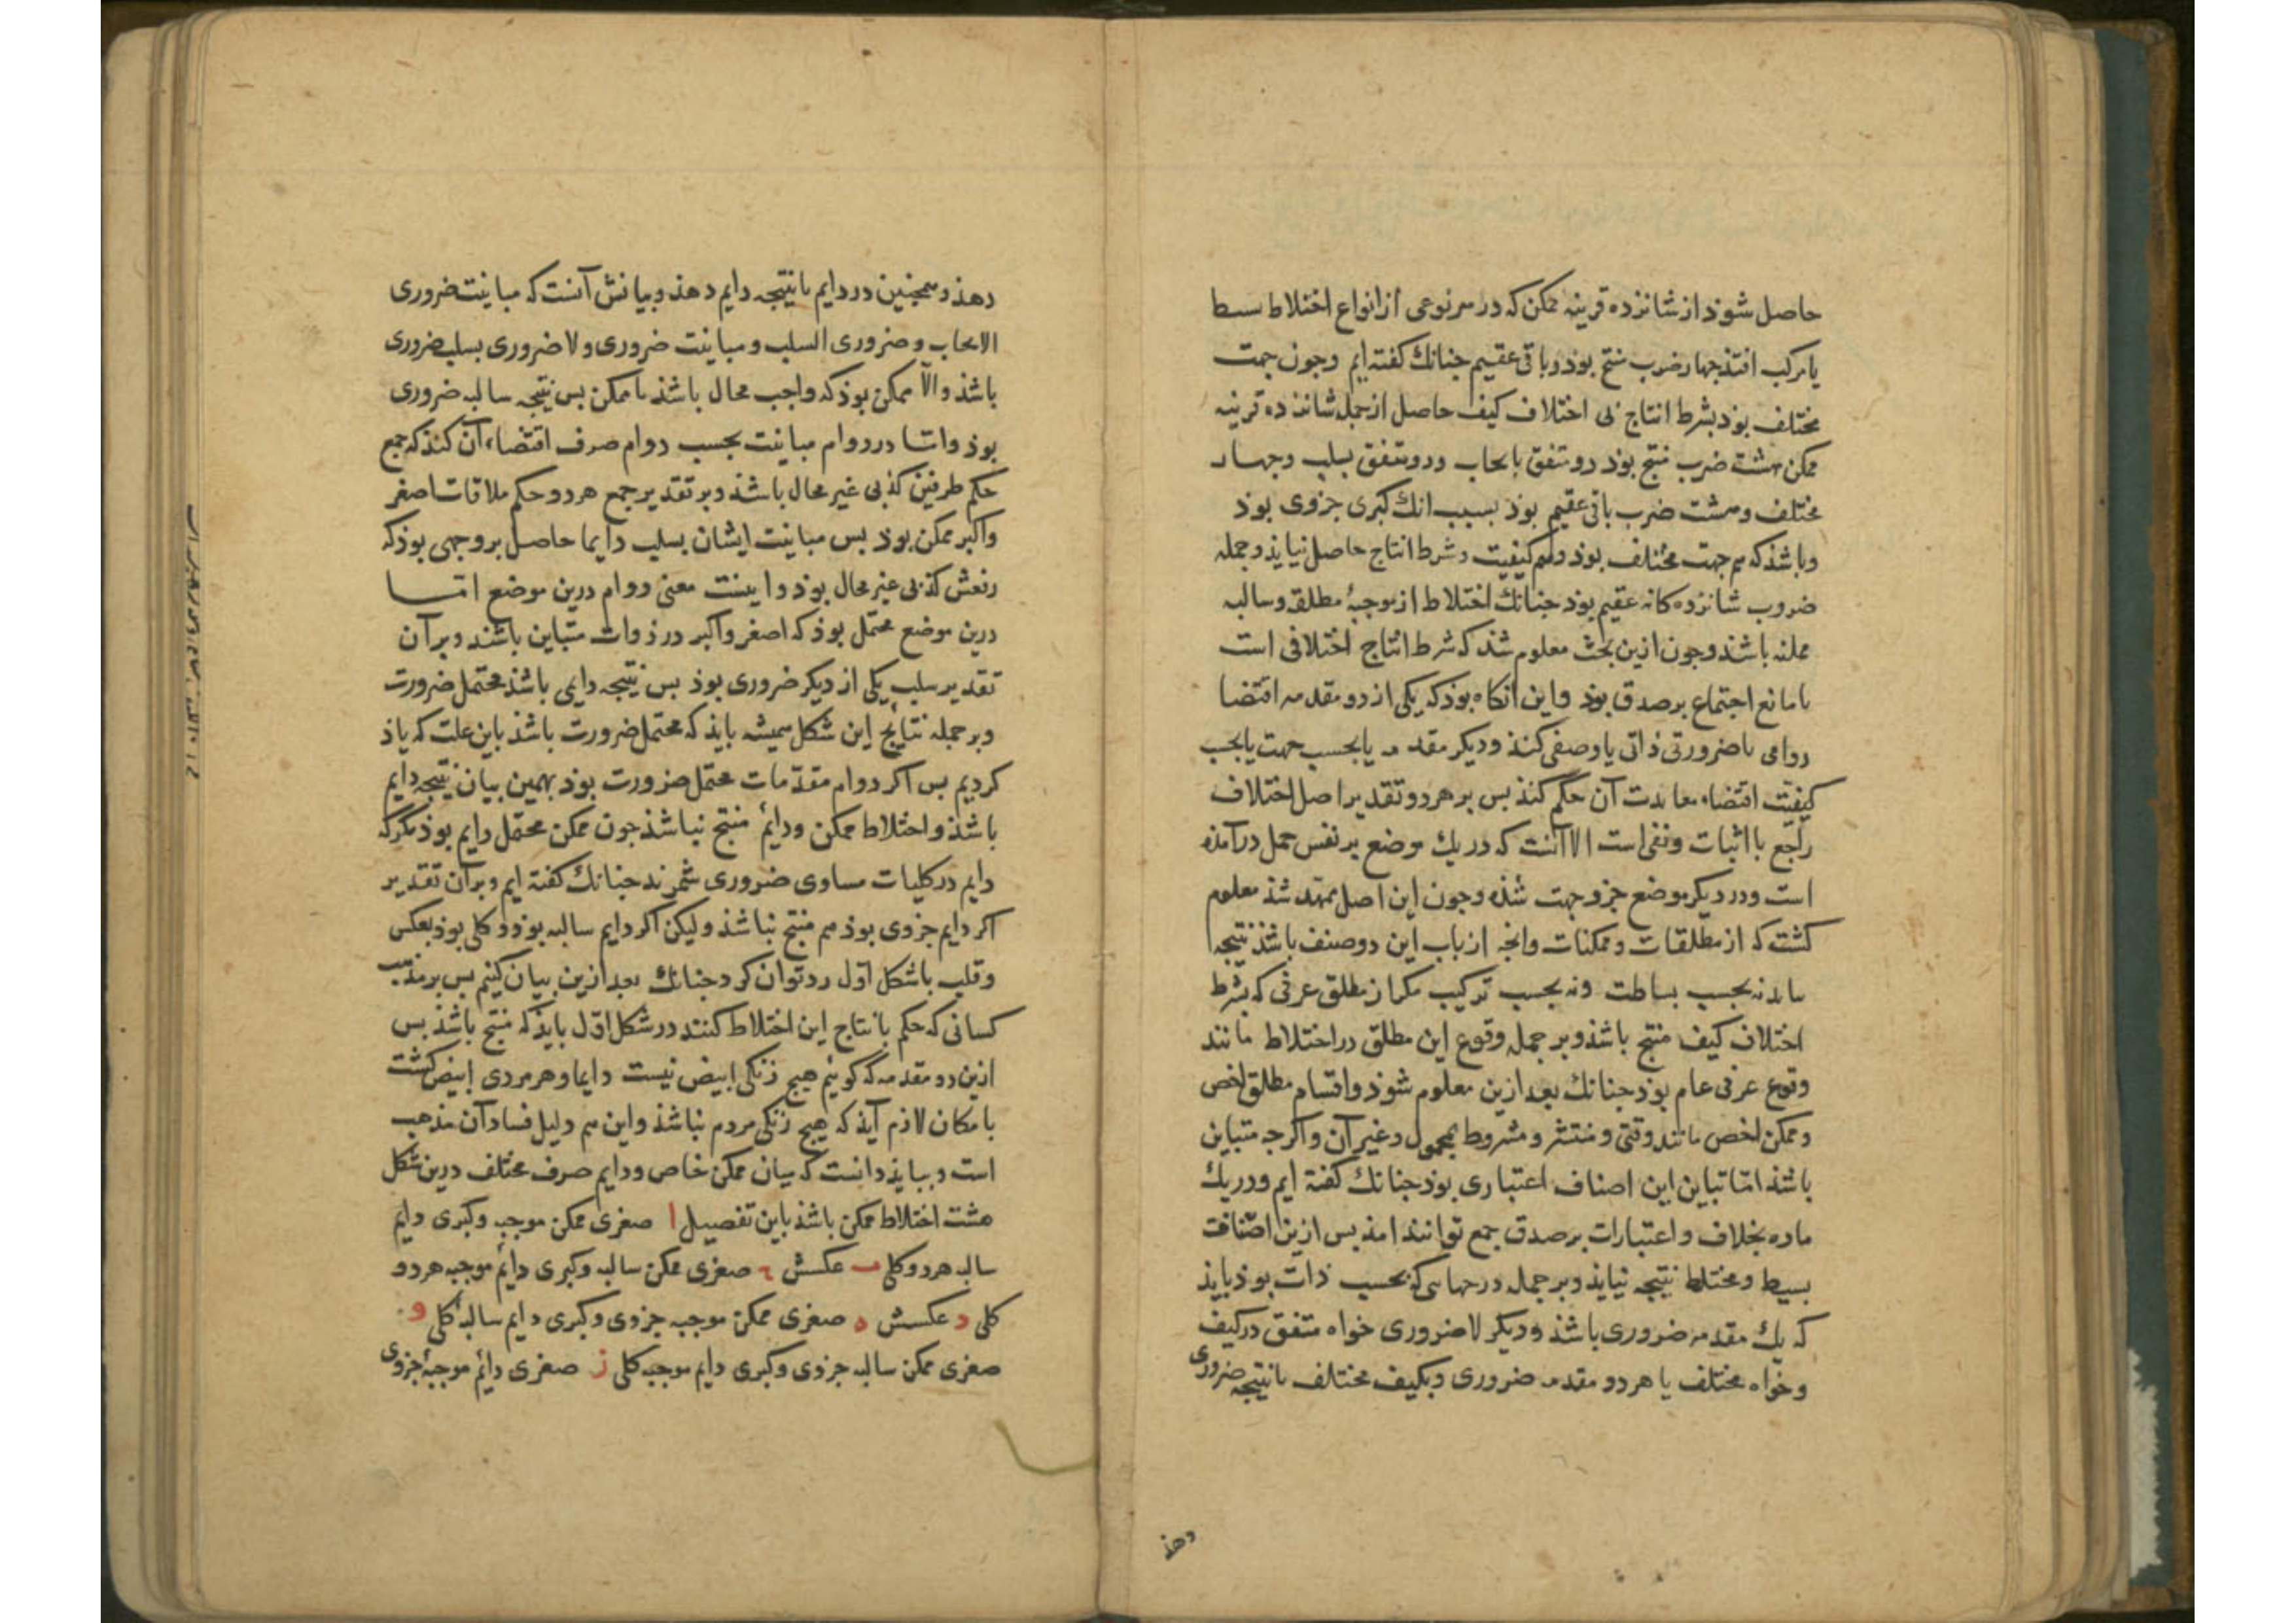 حاصل شوذ از شانزده قرینه ممکن که در هر نوعی از انواع اختلاط بسیط
یا مرکب افتذ جهار ضرب منتج بوذ و باقی عقیم جنانك کفته ایم و جون جهت
مختلف بوذ بشرط انتاج بی اختلاف کیف حاصل از جمله شانزده قرینه
ممکن هشت ضرب منتج بوذ دو متفق بایحاب و دو متفق بسلب و جهار
مختلف و هشت ضرب باقی عقیم بوذ بسبب انك کبری جزوی بوذ
و باشذ که هم جهت مختلف بوذ و هم کیفیت و شرط انتاج حاصل نیایذ و جمله
ضروب شانزده کانه عقیم بوذ جنانك اختلاط از موجبهٔ مطلقه و سالبه
ممکنه باشذ و جون ازین بحث معلوم شذ که شرط انتاج اختلافی است
با مانع اجتماع بر صدق بوذ و این آنکاه بوذ که یکی از دو مقدمه اقتضا
دوامی یا ضرورتی ذاتی یا وصفی کنذ و دیکر مقدمه یا بحسب جهت یا بحسب
کیفیت اقتضاء معاندت آن حکم کنذ بس بر هر دو تقدیر اصل اختلاف
راجع با اثبات و نفی است الا آنست که در یك موضع بر نفس حمل درآمذه
است و در دیکر موضع جزو جهت شذه و جون این اصل ممهد شذ معلوم
کشت که از مطلقات و ممکنات و انجه از باب این دو صنف باشذ نتیجه
نیایذ نه بحسب بساطت و نه بحسب ترکیب مکر از مطلق عرفی که بشرط
اختلاف کیف منتج باشذ و بر جمله وقوع این مطلق در اختلاط مانند
وقوع عرفی عام بوذ جنانك بعد ازین معلوم شوذ و اقسام مطلق اخص
و ممکن اخص مانند وقتی و منتشر و مشروط بمحمول و غیر آن و اکرجه متباین
باشذ امّا تباین این اصناف اعتباری بوذ جنانك کفته ایم و در یك
ماده بخلاف و اعتبارات بر صدق جمع توانند امذ بس ازین اصناف
بسیط و مختلط نتیجه نیایذ و بر جمله در جهاتی که بحسب ذات بوذ بایذ
که یك مقدمه ضروری باشذ و دیکر لاضروری خواه متفق در کیف
و خواه مختلف یا هر دو مقدمه ضروری و بکیف مختلف تا نتیجه ضروری
دهذ
دهذ و همجنین در دایم تا نتیجه دایم دهذ و بیانش آنست که مباینت ضروری
الایحاب و ضروری السلب و مباینت ضروری و لاضروری بسلب ضروری
باشذ و الّا ممکن بوذ که واجب محال باشذ یا ممکن بس نتیجه سالبه ضروری
بوذ و امّا در دوام مباینت بحسب دوام صرف اقتضاء آن کنذ که جمع
حکم طرفین کذبی غیر محال باشذ و بر تقدیر جمع هر دو حکم ملاقات اصغر
و اکبر ممکن بوذ بس مباینت ایشان بسلب دایما حاصل بر وجهی بوذ که
رفعش کذبی غیر محال بوذ و اینست معنی دوام درین موضع امّا
درین موضع محتمل بوذ که اصغر و اکبر در ذوات متباین باشند و بر آن
تقدیر سلب یکی از دیکر ضروری بوذ بس نتیجه دایمی باشذ محتمل ضرورت
و بر جمله نتایج این شکل همیشه بایذ که محتمل ضرورت باشذ باین علت که یاذ
کردیم بس اکر دوام مقدّمات محتمل ضرورت بوذ بهمین بیان نتیجه دایم
باشذ و اختلاط ممکن و دایم منتج نباشذ جون ممکن محتمل دایم بوذ مکر که
دایم در کلیات مساوی ضروری شمرند جنانك کفته ایم و بر آن تقدیر
اکر دایم جزوی بوذ هم منتج نباشذ و لیکن اکر دایم سالبه بوذ و کلی بوذ بعکس
و قلب با شکل اوّل رد توان کرد جنانك بعد ازین بیان کنیم بس بر مذهب
کسانی که حکم بانتاج این اختلاط کنند در شکل اوّل بایذ که منتج باشذ بس
ازین دو مقدمه که کوئیم هیج زنکی ابیض نیست دایما و هر مردی ابیض کشت
بامکان لازم آیذ که هیج زنکی مردم نباشذ و این هم دلیل فساد آن مذهب
است و ببایذ دانست که بیان ممکن خاص و دایم صرف مختلف درین شکل
هشت اختلاط ممکن باشذ باین تفصیل ا صغری ممکن موجب و کبری دایم
سالبه هر دو کلی ب عکسش ج صغری ممکن سالبه و کبری دایم موجبه هر دو
کلی د عکسش ه صغری ممکن موجبه جزوی و کبری دایم سالبهٔ کلی و
صغری ممکن سالبه جزوی و کبری دایم موجبه کلی ز صغری دایم موجبهٔ جزوی